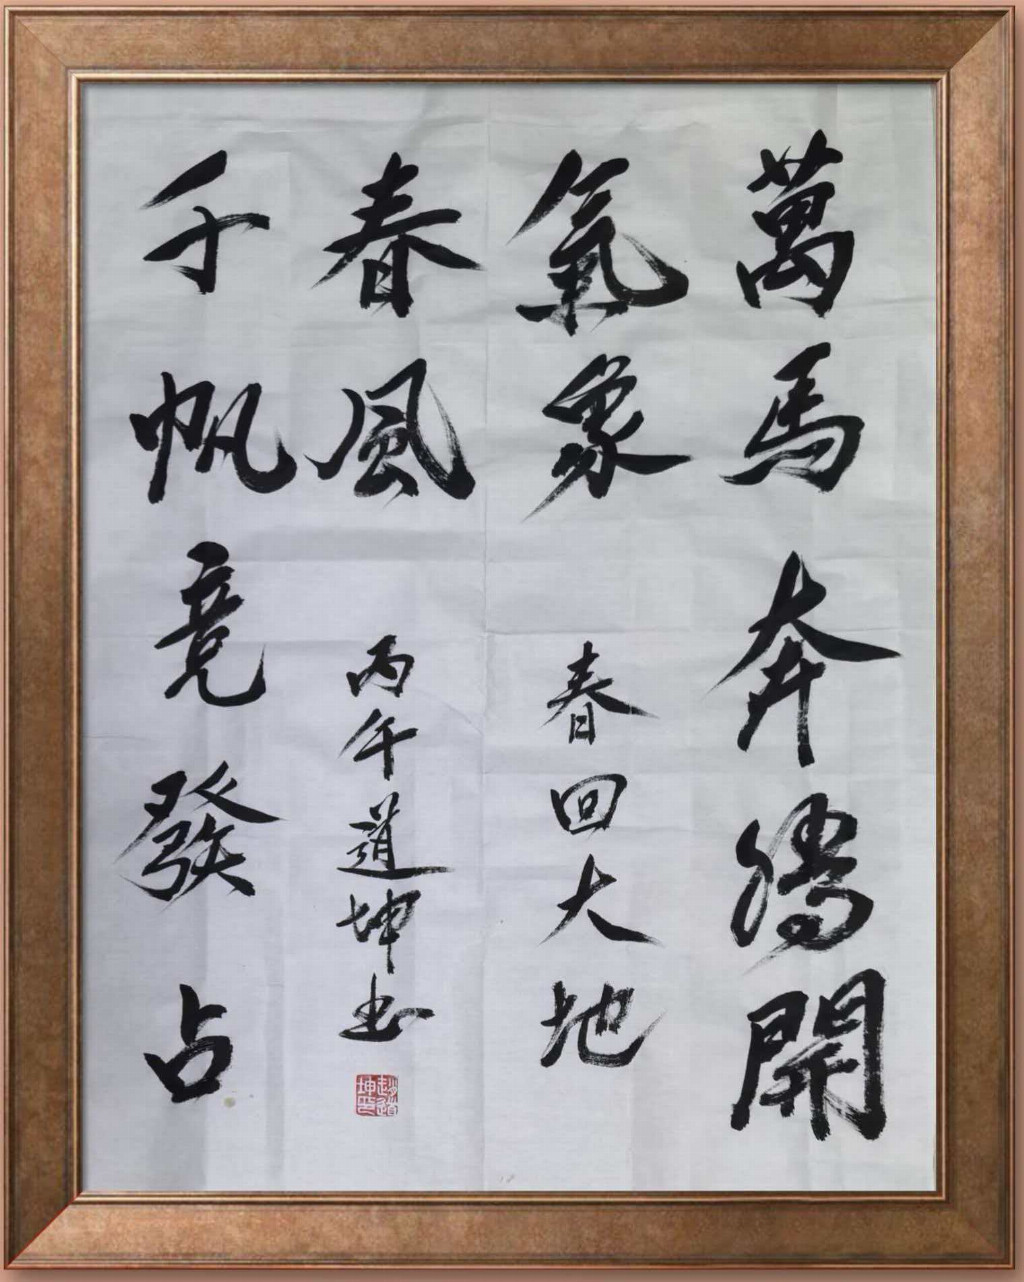 萬馬奔騰開
氣象
春回大地
千帆竞發占
春風
丙午道坤书
趙道坤印